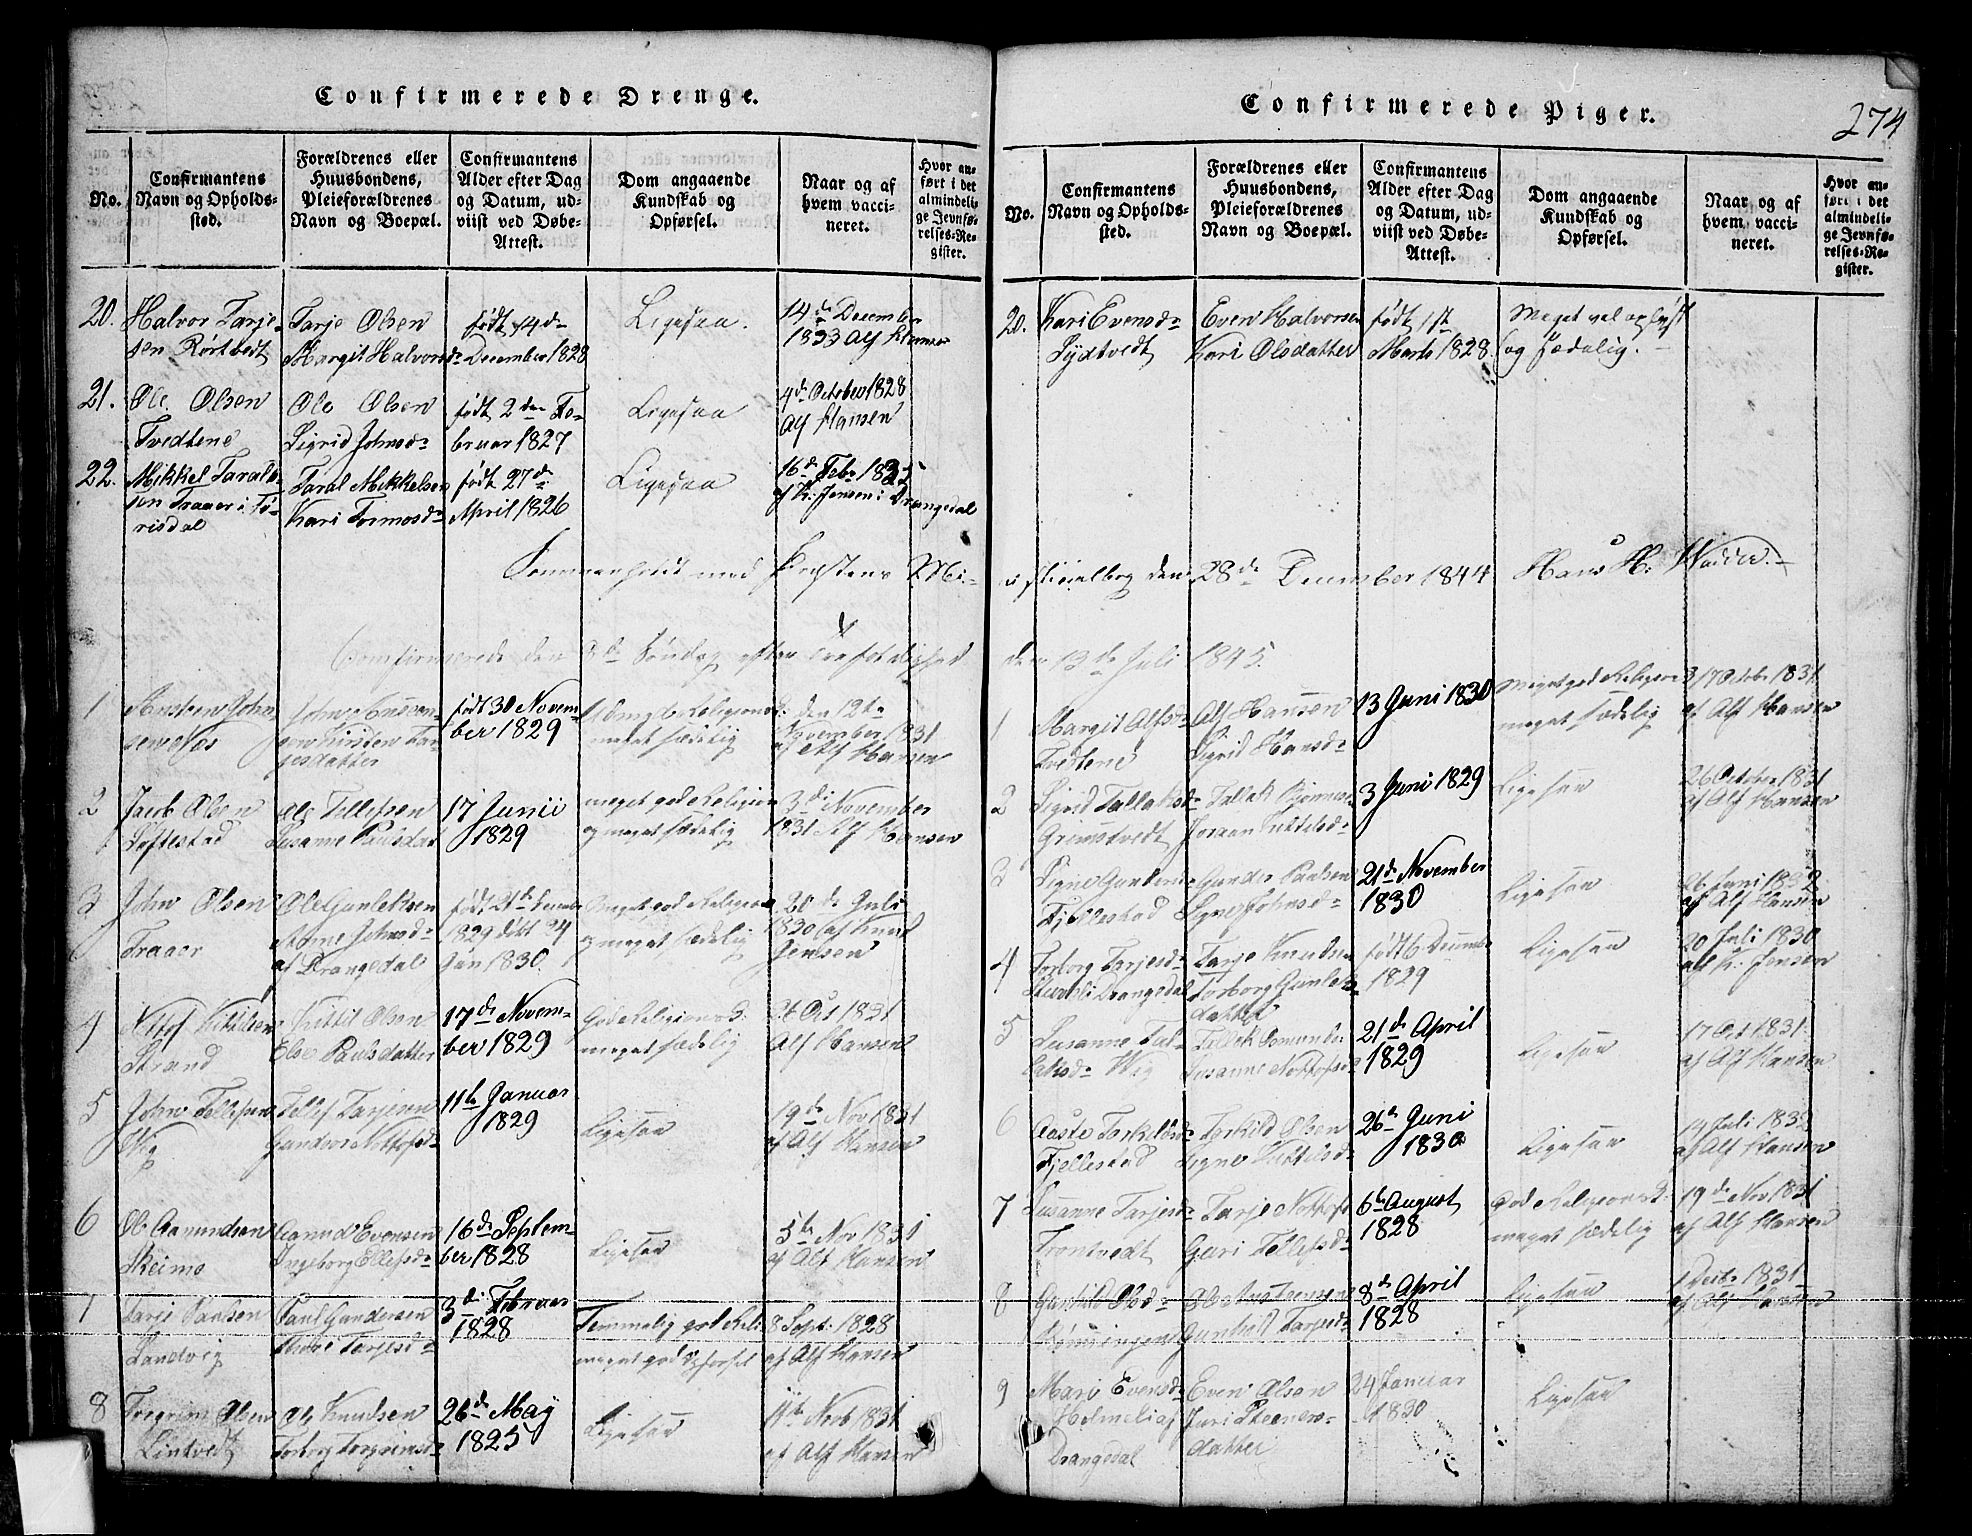 Confirmerede Drenge.
No.
Confirmantens
Navn og Opholds-
sted.
Forældrenes eller
Huusbondens,
Pleieforældrenes
Navn og Boepæl.
Confirmantens
Alder efter Dag
og Datum, ud-
viist ved Døbe-
Attest.
Dom angaaende
Kundskab og
Opførsel.
Naar og af
hvem vacci-
neret.
Hvor an-
ført i det
almindeli-
ge Jevnfø-
relses-Re-
gister.
20. Halvor Tarje-
sen Rørtvedt
Tarje Olsen
Margit Halvorsd
født 14de
December 1828
Ligesaa.
14de December
1833 Alf Hansen
21. Ole Olsen
Tvedtene
Ole Olsen
Sigrid Johnsdr
født 2den Fe-
bruar 1827
Ligesaa
4de October 1828
Alf Hansen
22. Mikkel Farals-
sen Traaer i Tø-
risdal
Taral Mikkelsen
Kari Tormosdr
født 27de
April 1826
Ligesaa
16de Febr
af K. Jensen i Drangedal
Sammenholdt med Prestens Mi-
Confirmerede den 8de Søndag efter Trefoldighed
1 John
sen Næs
Kirsten Tar-
jesdatter
født 30 Novem-
ber 1829
meget sædelig
den 12te
November 1831
af Alf Hansen
2 Jacob Olsen
Løftestad
Ole Tellefsen
Susanne Paulsdat
17 Junii
1829
meget god Religion
og meget sædelig
3de November
1831 Alf Hansen
3 John Olsen
Traaer
Ole Gunleksen
Johnsdr
af Drangedal
født 21de
1829 døbt 24
Jan 1830
Meget god Religion
og meget sædelig
20de Juli
1830 af Knud
Jensen
4 Kittilsen
Strand
Kittil Olsen
Else Paulsdatter
17de Novem-
ber 1829
God Religion
meget sædelig
Oct 1831
Alf Hansen
5 John Tellefsen
Wig
Tellef Tarjesen
Gundvor Nottofsdr
11te Januar
1829
Ligesaa
19de Nov 1831
af Alf Hansen
6 Ole Aamundsen
Skeimo
Aamund Evensen
Ingeborg Ellefsdr
16de Septem-
ber 1828
Ligesaa
5te Nov 1831
af Alf Hansen
7 Tarje Paulsen
Landvig
Paul Gundersen
Tarjesdr
3de Februar
1828
Temmelig god Reli
meget god Opførsel
8 Sept. 1828
af Alf Hansen
8 Torgrim Olsen
Lintvedt
Ole Knudsen
Torborg Torgrimsdr
26de May
1825
Ligesaa
1831
af Alf Hansen
Confirmerede Piger.
274
No.
Confirmantens
Navn og Opholds-
sted.
Forældrenes eller
Huusbondens,
Pleieforældrenes
Navn og Boepæl.
Confirmantens
Alder efter Dag
og Datum, ud-
viist ved Døbe-
Attest.
Dom angaaende
Kundskab og
Opførsel.
Naar og af
hvem vacci-
neret.
Hvor an-
ført i det
almindeli-
ge Jevnfø-
relses-Re-
gister.
20. Kari Evensdr
Sydtvedt
Even Halvorsen
Kari Olsdatter
født 1st
Marts 1828
Meget vel oplyst
og sædelig.
den 28de December 1844 Hans H.
den 13de Juli 1845
1 Margit Alfsdr
Tvedtene
Alf Hansen
Sigrid Hansdr
13 Juni 1830
Meget god Religion
meget sædelig
17 Octbr 1831
af Alf Hansen
2 Sigrid Tallaksdr
Grimstvedt
Tallak
Joraan Kittilsdr
3 Juni 1829
Ligesaa
26 October 1831
af Alf Hansen
3 Signe Gundersdr
Fjellestad
Gunder Paulsen
Signe Johnsdr
21de November
1830
Ligesaa
26 Juni
af Alf Hansen
4 Torborg Tarjesdr
Drangedal
Tarje Knudsen
Torborg Gunleks-
datter
født 6 December
1829
Ligesaa
20 Juli 1830
af K. Jensen
5 Susanne Tal-
laksdr Wig
Tallak
Susanne Nottofsd
21de April
1829
Ligesaa
17 Oct 1831
af Alf Hansen
6 Aaste Torkildsdr
Fjellestad
Torkild Olsen
Signe Kittilsdr
26de Juni
1830
Ligesaa
14 Juli
af Alf Hansen
7 Susanne Tarjesdr
Trontvedt
Tarje Nottofs
Guri Tellefsdr
6te August
1828
God Religion
meget sædelig
19de Nov 1831
af Alf Hansen
8 Gunhild Olsdr
Ole
Gunhild Tarjesdr
8de April
1828
Ligesaa
1 1831
af Alf Hansen
9 Mari Evensdr
Drangedal
Even Olsen
datter
24 Januar
1830
Ligesaa